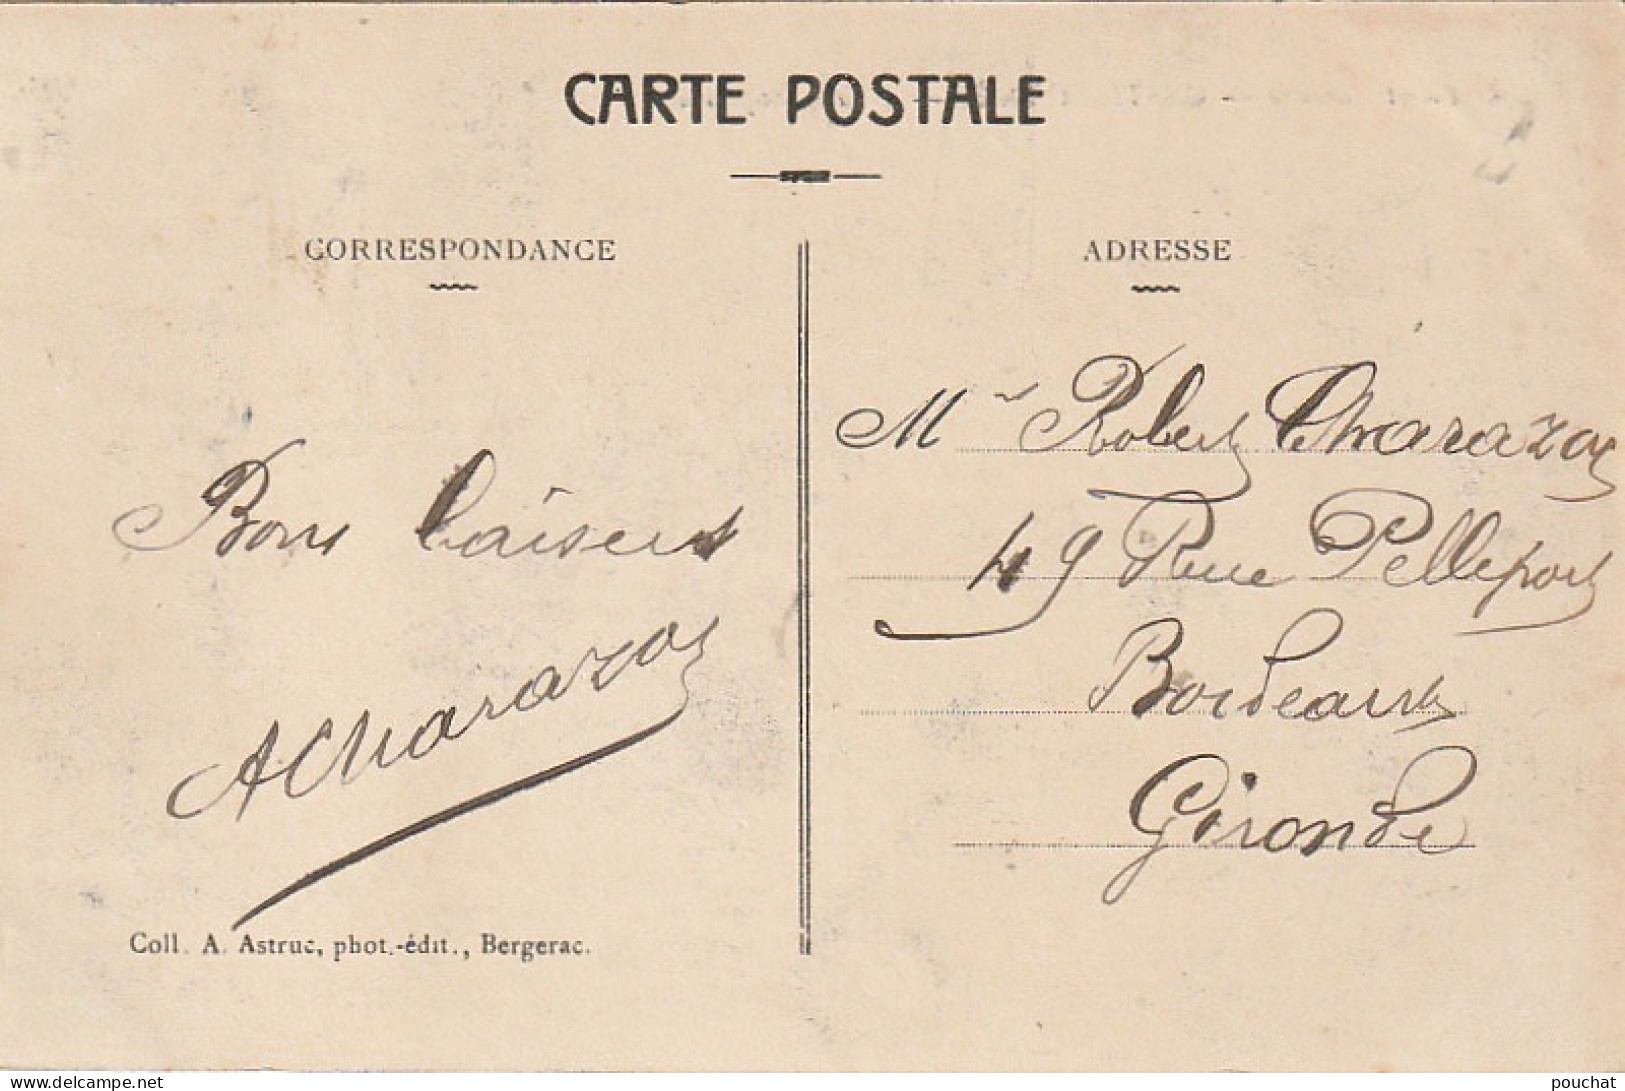 CARTE POSTALE
CORRESPONDANCE
Bons baisers
ACharazac
Coll. A. Astruc, phot.-édit., Bergerac.
ADRESSE
Mr Robert Charazac
49 Rue Pelleport
Bordeaux
Gironde
www.delcampe.net
pouchat